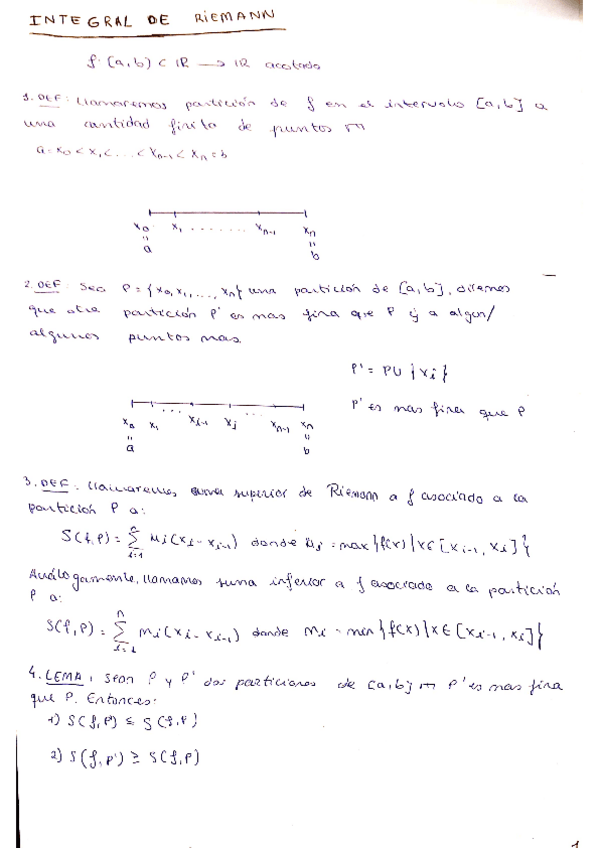 INTEGRAL DE RIEMANN
f: [a,b] ⊂ IR → IR acotada
1. DEF: Llamaremos partición de f en el intervalo [a,b] a
una cantidad finita de puntos
a = x₀ < x₁ < ... < xₙ₋₁ < xₙ = b
x₀ x₁ ........ xₙ₋₁ xₙ
" "
a b
2. DEF: Sea P = {x₀, x₁, ..., xₙ} una partición de [a,b], diremos
que otra partición P' es mas fina que P a algun/
algunos puntos mas.
P' = P ∪ {xj}
P' es mas fina que P
... ...
x₀ x₁ xⱼ₋₁ xj xₙ₋₁ xₙ
" "
a b
3. DEF: Llamaremos suma superior de Riemann a f asociado a la
partición P a:
S(f,P) = Σ Mi(xi - xi-1) donde Mi = max{f(x) | x ∈ [xi-1, xi]}
n
i=1
Análogamente, llamamos suma inferior a f asociado a la partición
P a:
S(f,P) = Σ mi(xi - xi-1) donde mi = min{f(x) | x ∈ [xi-1, xi]}
n
i=1
4. LEMA: Sean P y P' dos particiones de [a,b] P' es mas fina
que P. Entonces:
1) S(f,P') ≤ S(f,P)
2) S(f,P') ≥ S(f,P)
1